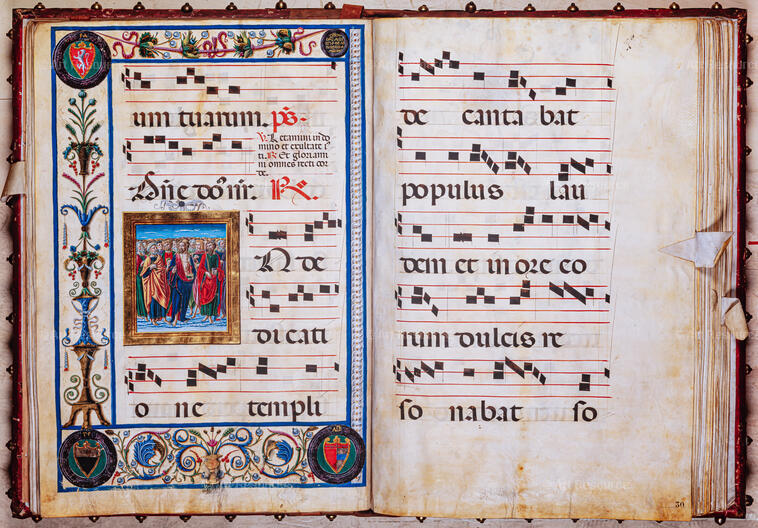 um tuarum. ps.
V. Letamini in do
mino et exultate i
ti. R. Et gloriami
ni omnes recti cor
de.
Dñe dõ nr̃. R.
N de
di cati
o ne templi
de canta bat
populus lau
dem et in ore eo
rum dulcis re
so nabat so
30